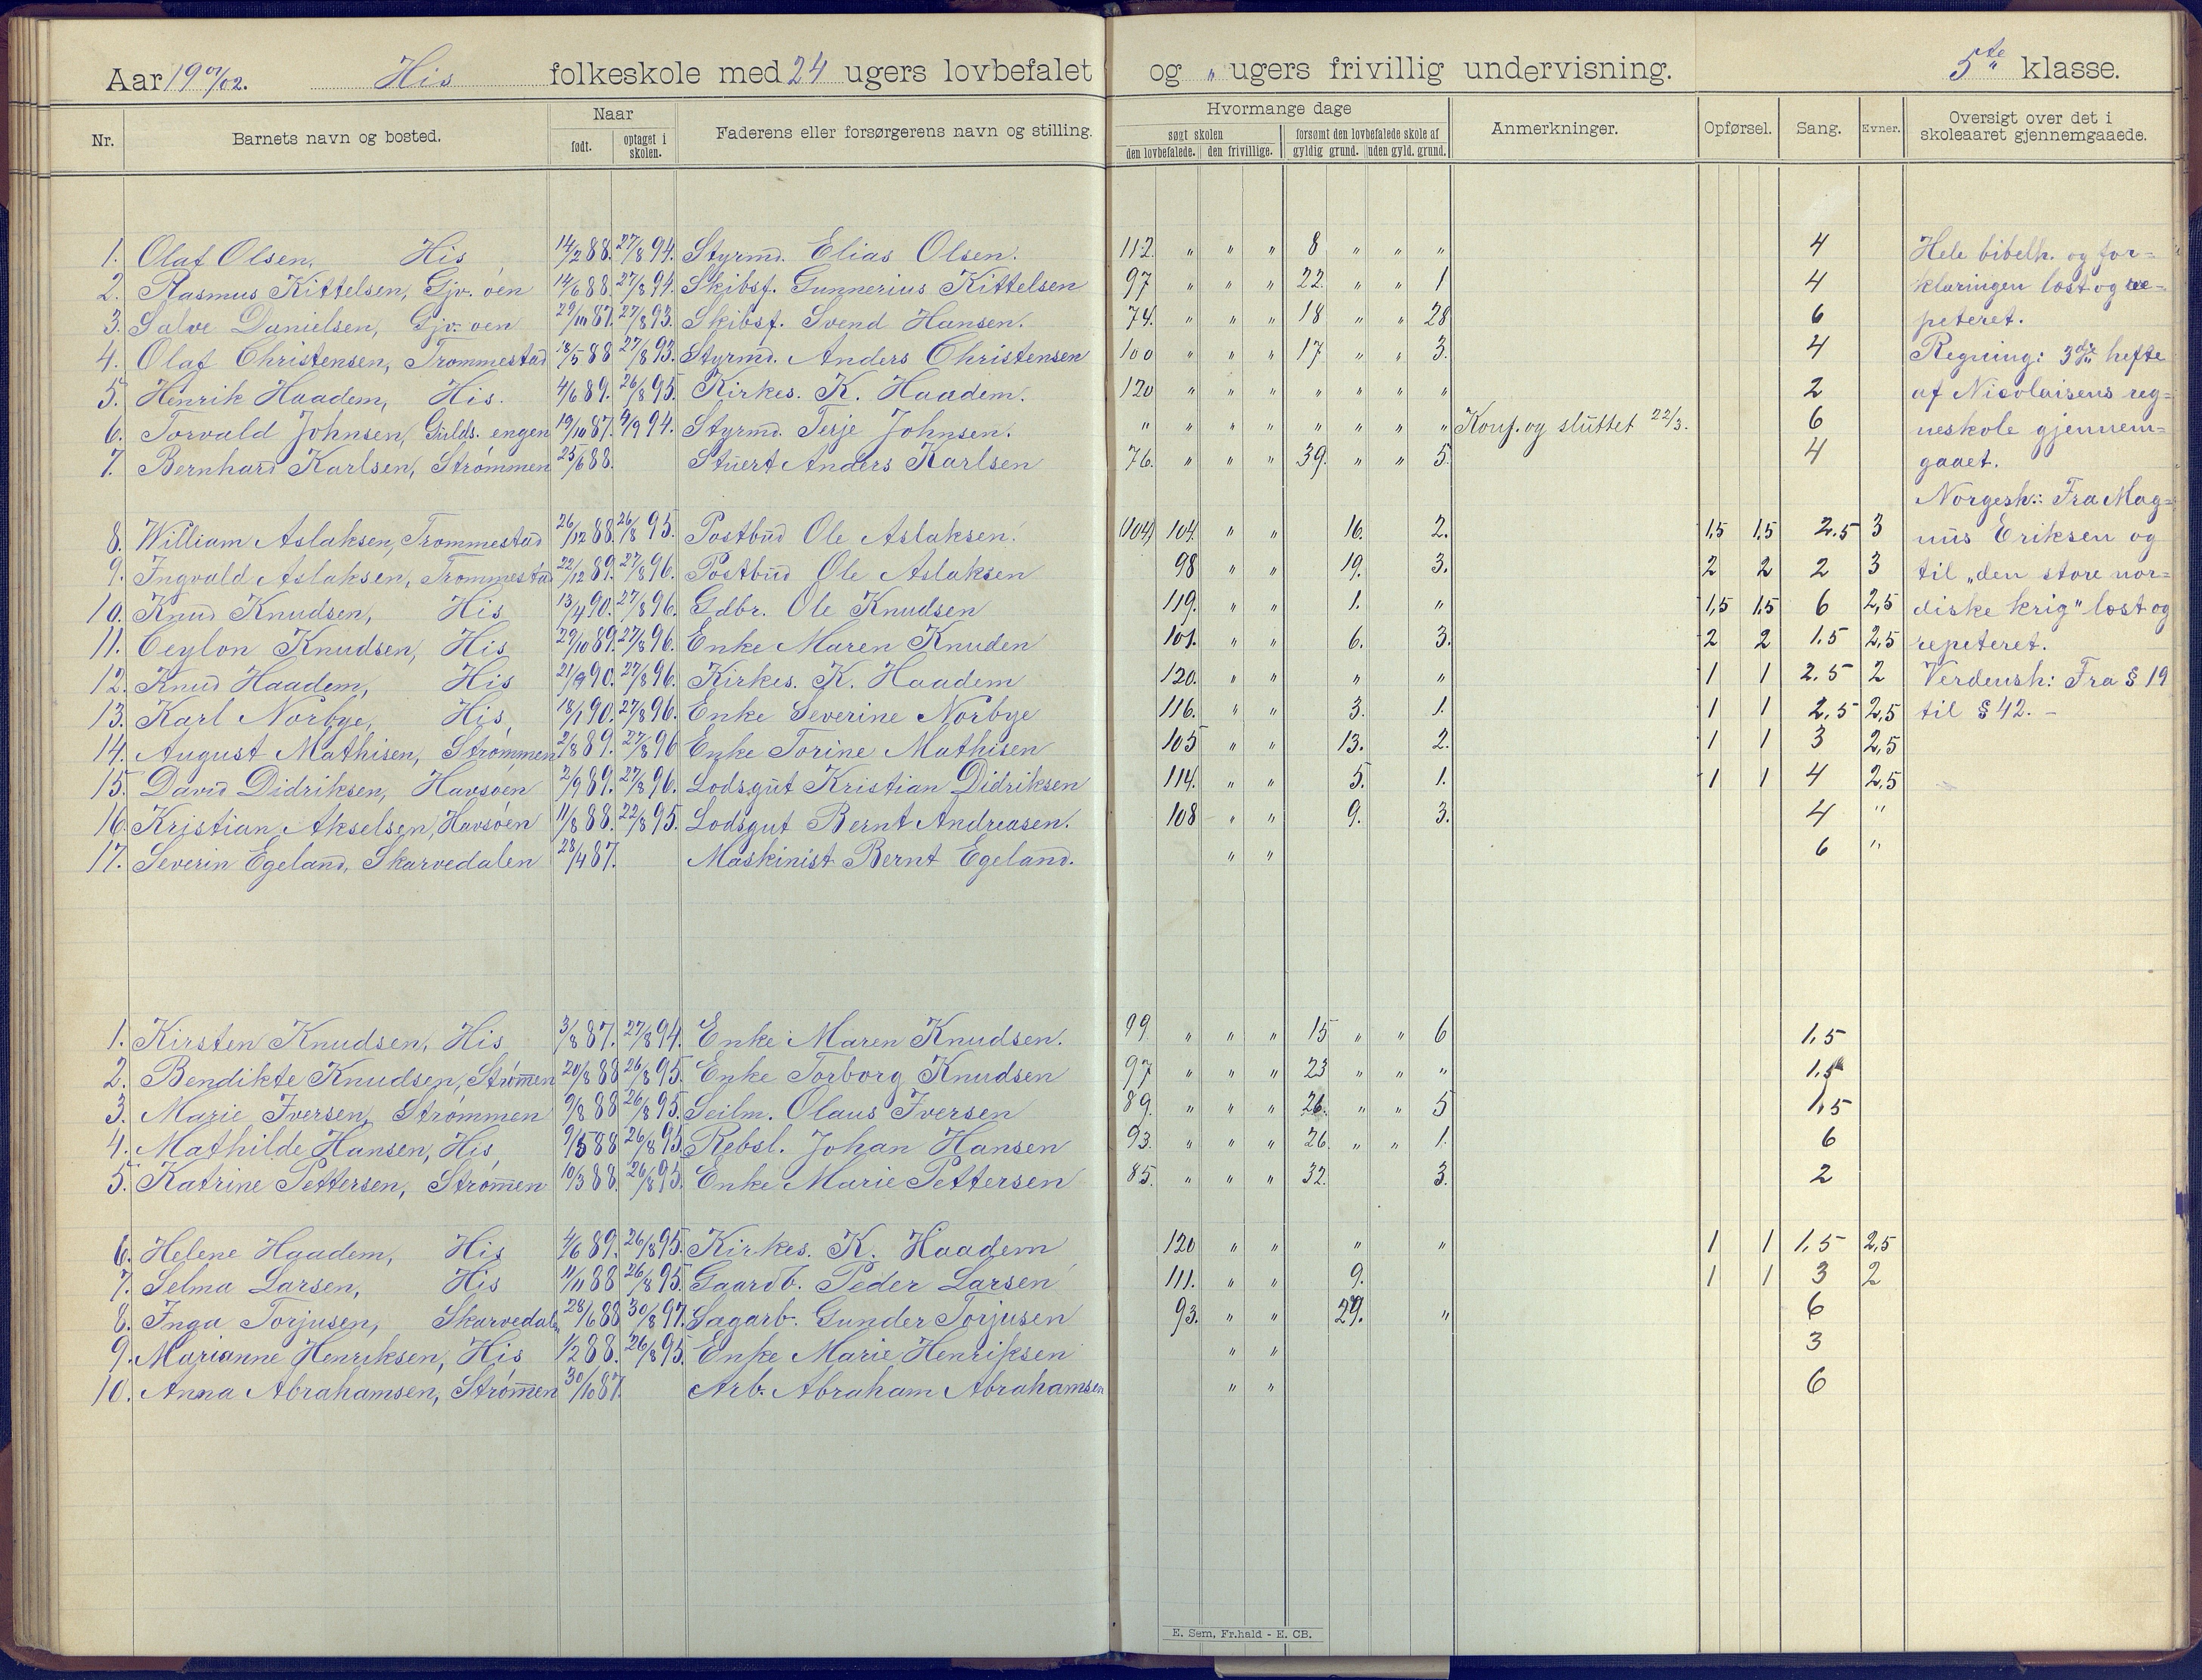 Aar 1901/02. His folkeskole med 24 ugers lovbefalet og " ugers frivillig undervisning. 5te klasse.
Nr. Barnets navn og bosted. Naar født. optaget i skolen. Faderens eller forsørgerens navn og stilling. Hvormange dage søgt skolen den lovbefalede. den frivillige. forsømt den lovbefalede skole af gyldig grund. uden gyld. grund. Anmerkninger. Opførsel. Sang. Evner. Oversigt over det i skoleaaret gjennemgaaede.
1. Olaf Olsen, His 14/2 88. 27/8 94. Styrmd. Elias Olsen. 112. " " " 8 " " " 4 Hele bibelh. og for=
2. Rasmus Kittelsen, Gjv. øen 14/6 88. 27/8 94. Skibsf. Gunnerius Kittelsen 97 " " " 22. " " 1 4 klaringen læst og re=
3. Salve Danielsen, Gjv. øen 29/10 87. 27/8 93. Skibsf. Svend Hansen. 74. " " " 18 " " 28 6 peteret.
4. Olaf Christensen, Trommestad 18/5 88 27/8 93. Styrmd. Anders Christensen 100 " " " 17. " " 3. 4 Regning: 3die hefte
5. Henrik Haadem, His. 4/6 89. 26/8 95. Kirkes. K. Haadem. 120 " " " " " " " 2 af Nicolaisens reg=
6. Torvald Johnsen, Gulds. engen 19/10 87. 4/9 94. Styrmd. Terje Johnsen. " " " " " " " " Konf. og sluttet 22/3. 6 neskole gjennem=
7. Bernhard Karlsen, Strømmen 25/6 88. Stuert Anders Karlsen 76. " " " 39. " " 5. 4 gaaet.
Norgesh.: Fra Mag=
8. William Aslaksen, Trommestad 26/12 88. 26/8 95. Postbud Ole Aslaksen. (104) 104. " " 16. 2. 1,5 1,5 2,5 3 nus Eriksen og
9. Ingvald Aslaksen, Trommestad 22/12 89. 27/8 96. Postbud Ole Aslaksen 98 " " 19. 3. 2 2 2 3 til „den store nor=
10. Knud Knudsen, His 13/4 90. 27/8 96. Gdbr. Ole Knudsen 119. " " 1. " 1,5 1,5 6 2,5 diske krig" læst og
11. Ceylon Knudsen, His 29/10 89. 27/8 96. Enke Maren Knuden 101. " " 6. 3. 2 2 1,5 2,5 repeteret.
12. Knud Haadem, His 21/9 90. 27/8 96. Kirkes. K. Haadem 120. " " " " 1 1 2,5 2 Verdensh: Fra § 19
13. Karl Norbye, His, 18/1 90. 27/8 96. Enke Severine Norbye 116. " " 3. 1. 1 1 2,5 2,5 til § 42. –
14. August Mathisen, Strømmen 2/8 89. 27/8 96 Enke Torine Mathisen 105 " " 13. 2. 1 1 3 2,5
15. David Didriksen, Havsøen 2/9 89. 27/8 96. Lodsgut Kristian Didriksen 114. " " 5. 1. 1 1 4 2,5
16. Kristian Akselsen, Havsøen 11/8 88. 22/8 95. Lodsgut Bernt Andreasen. 108 " " 9. 3. 4 "
17. Severin Egeland, Skarvedalen 28/4 87. Maskinist Bernt Egeland. " " 6 "
1. Kirsten Knudsen, His 3/8 87. 27/8 94. Enke Maren Knudsen. 99. " " " 15 " " 6 1,5
2. Bendikte Knudsen, Strømen 20/8 88 26/8 95. Enke Torborg Knudsen 97 " " " 23 " " " 1,5
3. Marie Iversen, Strømmen 9/8 88 26/8 95. Seilm. Olaus Iversen 89. " " " 26. " " 5 1,5
4. Mathilde Hansen, His 9/5 88 26/8 95. Rebsl. Johan Hansen 93. " " " 26 " " 1. 6
5. Katrine Pettersen, Strømen 10/3 88. 26/8 95. Enke Marie Pettersen 85. " " " 32. 3. 2
6. Helene Haadem, His 4/6 89. 26/8 95. Kirkes. K. Haadem 120 " " " " 1 1 1,5 2,5
7. Selma Larsen, His 11/11 88 26/8 95. Gaardb. Peder Larsen 111. " " 9. 1 1 3 2
8. Inga Torjusen, Skarvedal. 28/6 88 30/8 97. Sagarb. Gunder Torjusen 93. " " 27. " 6
9. Marianne Henriksen, His 1/2 88. 26/8 95. Enke Marie Henriksen " " 3
10. Anna Abrahamsen, Strømen 30/10 87. Arb. Abraham Abrahamsen " " 6
E. Sem, Fr.hald - E. CB.